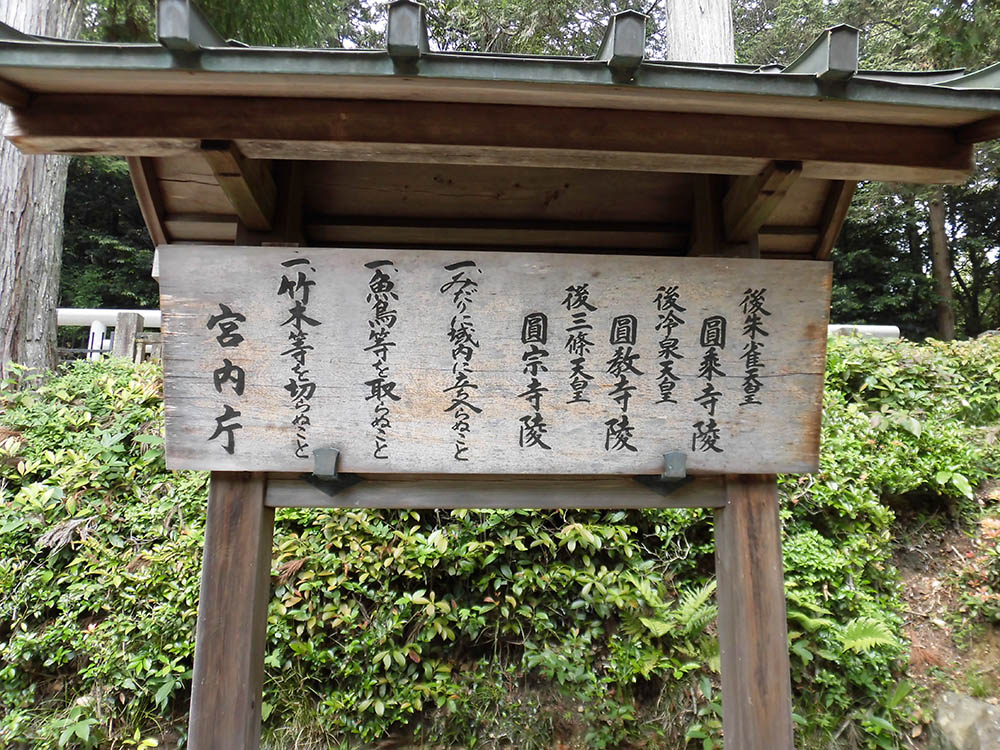 後朱雀天皇
圓乘寺陵
後冷泉天皇
圓教寺陵
後三條天皇
圓宗寺陵
一、みだりに域内に立入らぬこと
一、魚鳥等を取らぬこと
一、竹木等を切らぬこと
宮内庁